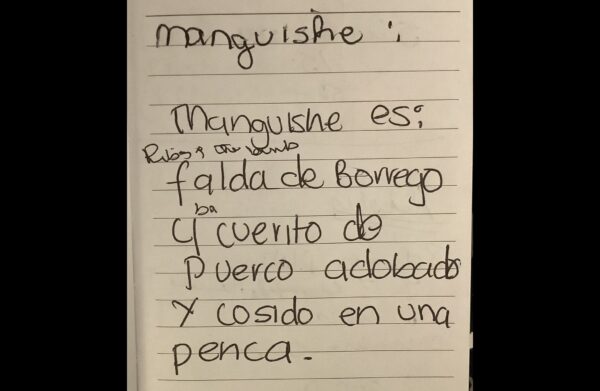 manguishe :
Manguishe es:
Ribs of the lamb
falda de Borrego
ba
y cuerito de
puerco adobado
y cosido en una
penca.